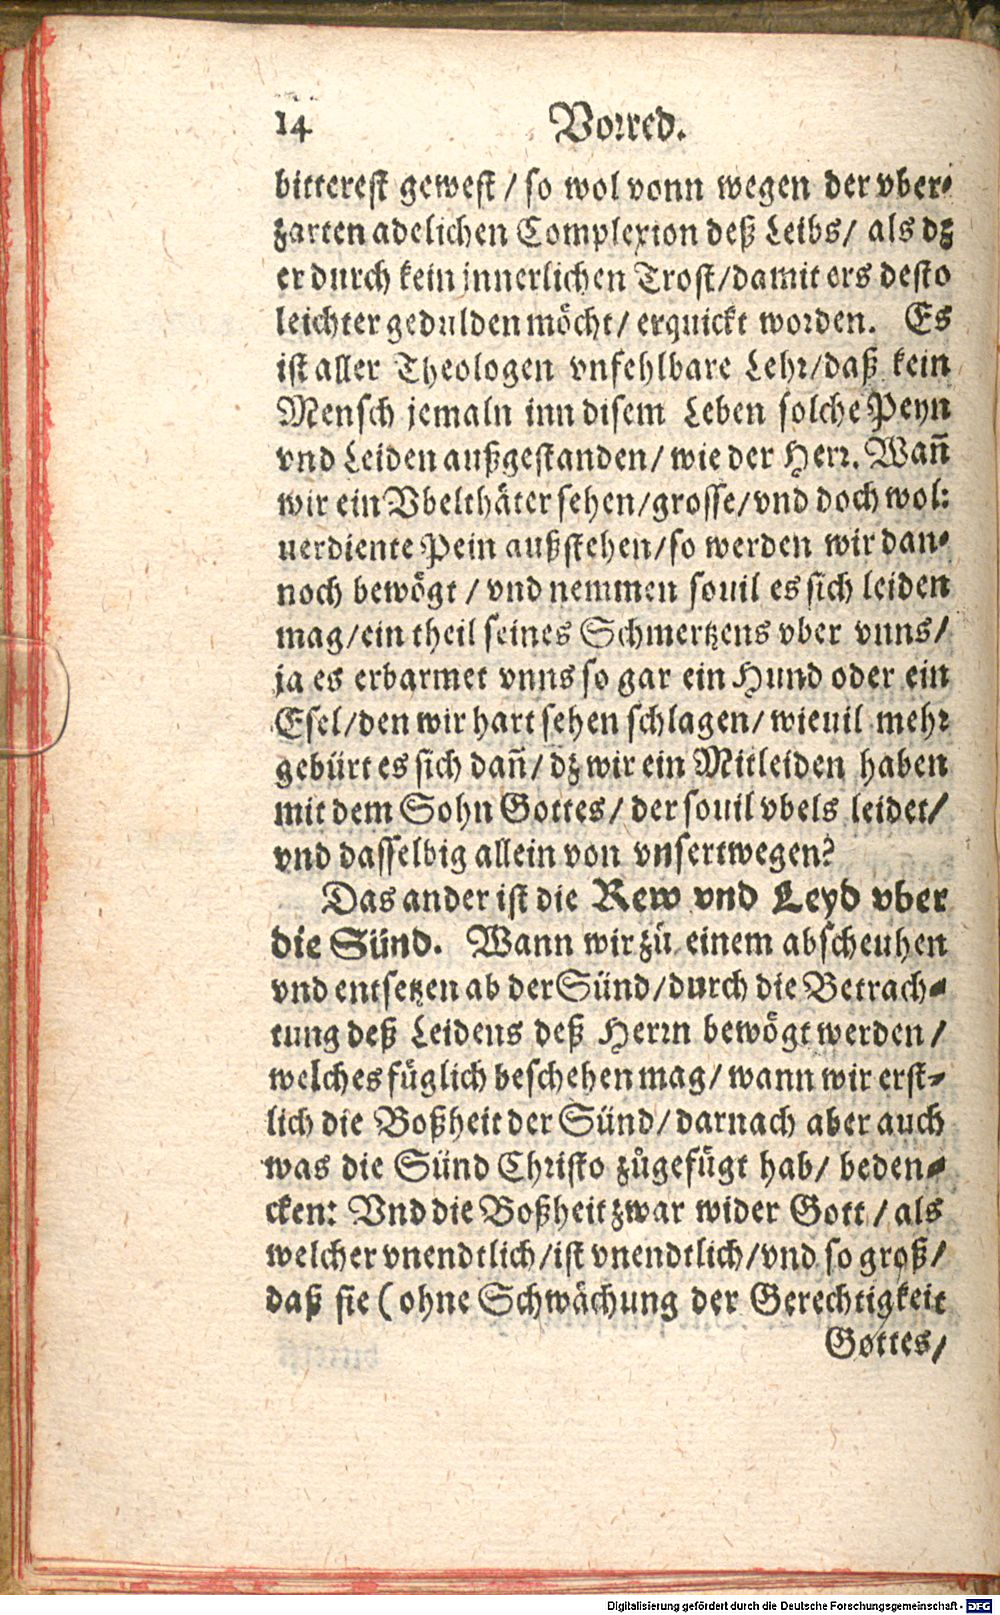 14 Vorred.
bitterest gewest / so wol vonn wegen der vber⸗
zarten adelichen Complexion deß Leibs / als dz
er durch kein innerlichen Trost / damit ers desto
leichter gedulden möcht / erquickt worden. Es
ist aller Theologen vnfehlbare Lehr / daß kein
Mensch jemaln inn disem Leben solche Peyn
vnd Leiden außgestanden / wie der Herr. Wañ
wir ein Vbelthäter sehen / grosse / vnd doch wol:
uerdiente Pein außstehen / so werden wir dan⸗
noch bewögt / vnd nemmen souil es sich leiden
mag / ein theil seines Schmertzens vber vnns /
ja es erbarmet vnns so gar ein Hund oder ein
Esel / den wir hart sehen schlagen / wieuil mehr
gebürt es sich dañ / dz wir ein Mitleiden haben
mit dem Sohn Gottes / der souil vbels leidet /
vnd dasselbig allein von vnsertwegen?
Das ander ist die Rew vnd Leyd vber
die Sünd. Wann wir zů einem abscheuhen
vnd entsetzen ab der Sünd / durch die Betrach⸗
tung deß Leidens deß Herrn bewögt werden /
welches füglich beschehen mag / wann wir erst⸗
lich die Boßheit der Sünd / darnach aber auch
was die Sünd Christo zůgefügt hab / beden⸗
cken: Vnd die Boßheit zwar wider Gott / als
welcher vnendtlich / ist vnendtlich / vnd so groß /
daß sie ( ohne Schwächung der Gerechtigkeit
Gottes /
Digitalisierung gefördert durch die Deutsche Forschungsgemeinschaft - DFG